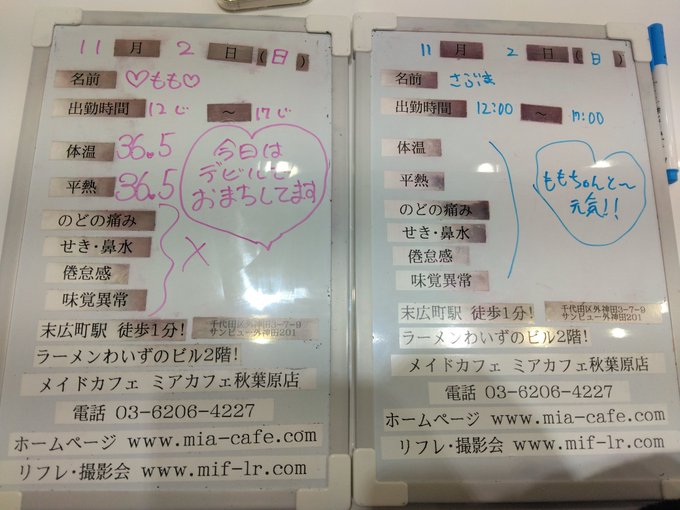 11月2日(日)
名前 ♡もも♡
出勤時間 12じ ～ 17じ
体温 36.5
平熱 36.5
今日は
デビルで
おまちしてます
のどの痛み
せき・鼻水
倦怠感
味覚異常
×
末広町駅 徒歩1分!
千代田区外神田3-7-9
サンビュー外神田201
ラーメンわいずのビル2階!
メイドカフェ ミアカフェ秋葉原店
電話 03-6206-4227
ホームページ www.mia-cafe.com
リフレ・撮影会 www.mif-lr.com
11月2日(日)
名前
出勤時間 12:00 ～ 17:00
体温
平熱
のどの痛み
せき・鼻水
倦怠感
味覚異常
ももちゃんと～
元気!!
末広町駅 徒歩1分!
千代田区外神田3-7-9
サンビュー外神田201
ラーメンわいずのビル2階!
メイドカフェ ミアカフェ秋葉原店
電話 03-6206-4227
ホームページ www.mia-cafe.com
リフレ・撮影会 www.mif-lr.com